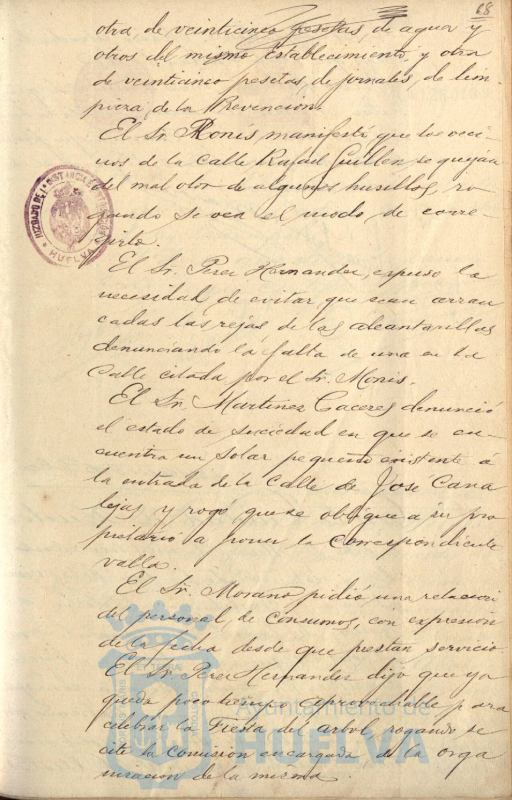 68
otra, de veinticinco pesetas, de agua y
otros del mismo establecimiento, y otra
de veinticinco pesetas de jornales, de lim-
pieza, de la Prevencion.
El Sr. Monis manifestó que los veci-
nos de la Calle Rafael Guillen se quejan
del mal olor de algunos husillos, ro-
gando se vea el modo de corre-
girlo.
El Sr. Perez Hernandez, expuso la
necesidad de evitar que sean arran
cadas las rejas de las alcantarillas
denunciando la falta de una en la
Calle citada por el Sr. Monis.
El Sr. Martinez Caceres denunció
el estado de suciedad en que se en-
cuentra un solar pequeño existente á
la entrada de la Calle de José Cana
lejas, y rogó que se obligue a su pro
pietario a poner la correspondiente
valla.
El Sr. Morano pidió una relacion
del personal, de Consumos, con expresión
de la fecha desde que prestan servicio
El Sr. Perez Hernandez dijo que ya
queda poco tiempo aprovechable para
celebrar la Fiesta del arbol, rogando se
cite la Comision encargada de la orga
nizacion de la misma.
JUZGADO DE 1ª INSTANCIA E INSTRUCCION
HUELVA
Ayuntamiento de
HUELVA